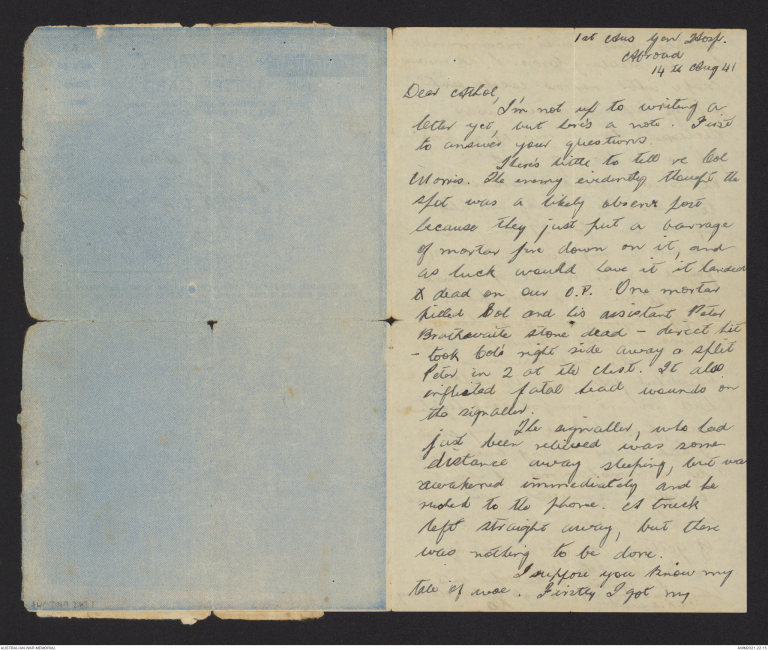 1st Aus Gen Hosp.
Abroad
14th Aug 41
Dear Athol,
I'm not up to writing a
letter yet, but here's a note. First
to answer your questions
There's little to tell re Col
Morris. The enemy evidently thought the
spit was a likely observ post
because they just put a barrage
of mortar fire down on it, and
as luck would have it it landed
dead on our O.P. One mortar
killed Col and his assistant Peter
Braithwaite stone dead - direct hit
- took Col's right side away & split
Peter in 2 at the chest. It also
inflicted fatal head wounds on
the signaller.
The signaller, who had
just been relieved was some
distance away sleeping, but was
awakened immediately and he
rushed to the phone. A truck
left straight away, but there
was nothing to be done.
I suppose you know my
tale of woe. Firstly I got my
AUSTRALIAN WAR MEMORIAL
AWM2021.22.15